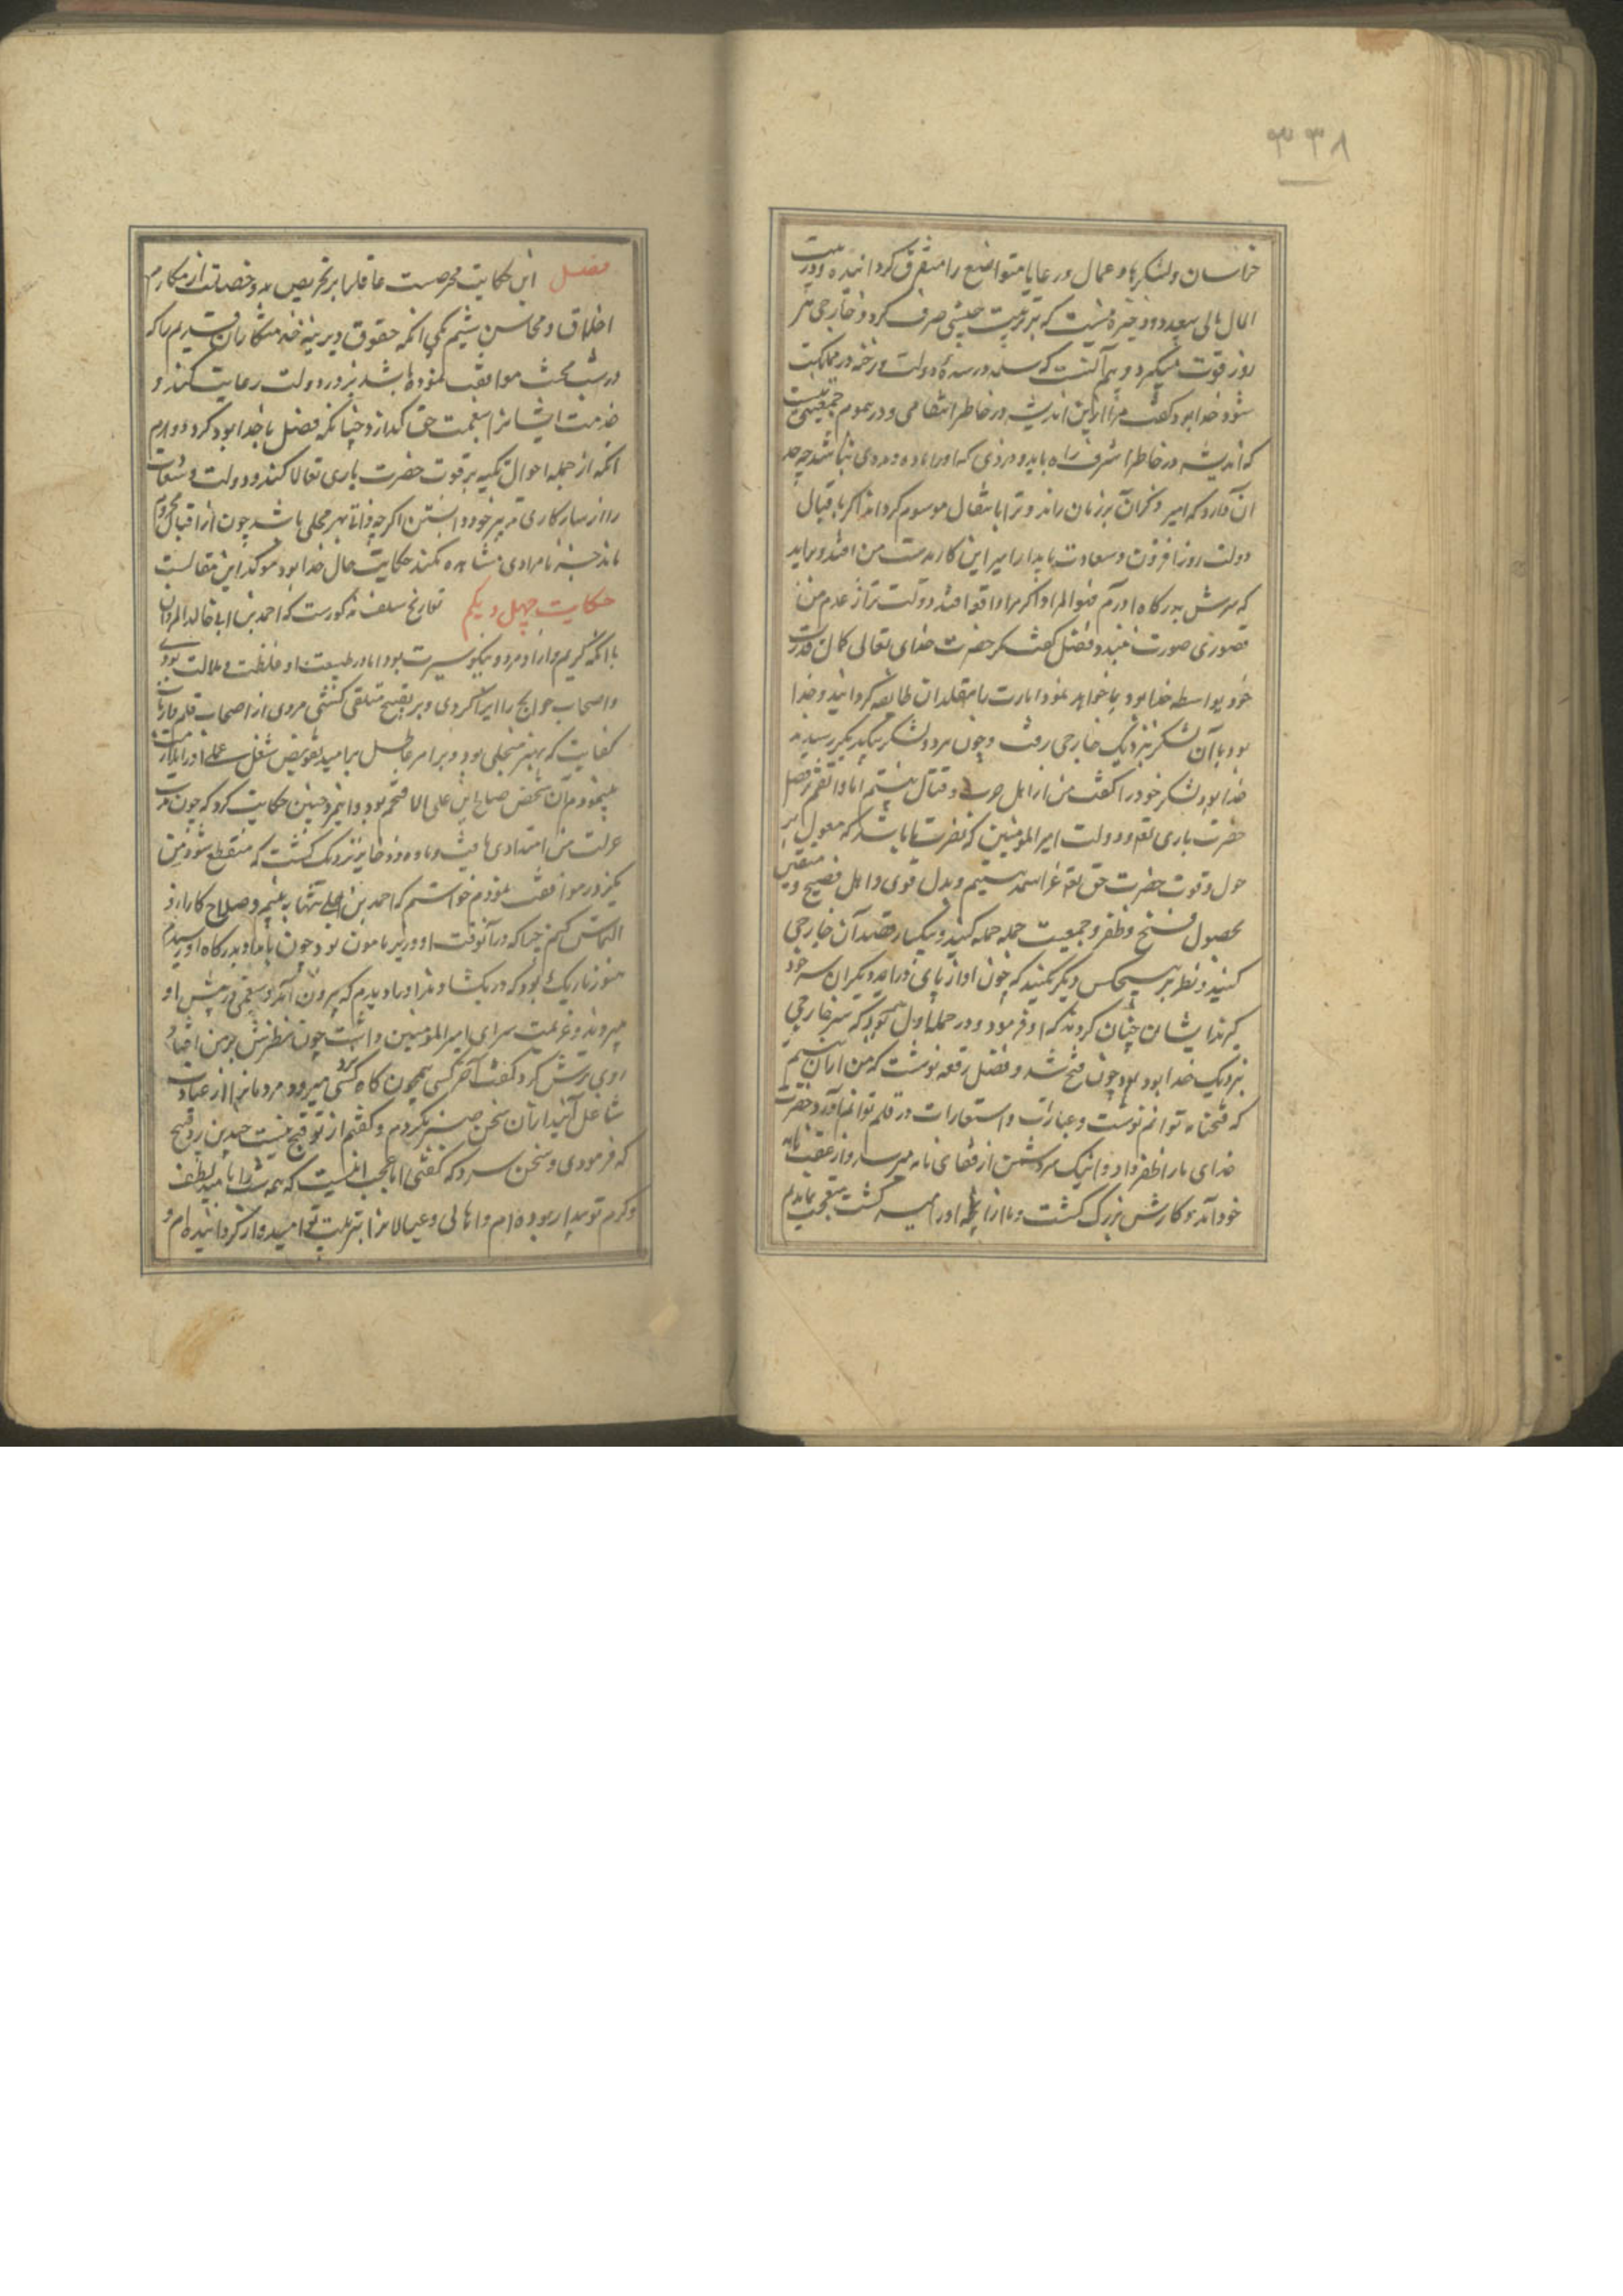 ۳۳۸
خراسان ولشکرها وعمال ورعایا متواضع را متفرق کردانیده ودربیت
المال مالی بعید وذخیره نیست که بترتیب جیشی صرف کرد وخارجی هر
روز قوت میکیرد وبیم آنست که در دولت ورخنه در مملکت
شود خدابود کفت مرا ازین اندیشه در خاطر انتظامی ودر هموم جمعیتی نیست
که اندیشه در خاطر اشرف راه یابد ومردی که اورا ماده ومددی نباشد چه حد
آن دارد که امیر ذکر آن بر زبان راند وترا بانتقال موسوم کرداند اکر باقبال
دولت روز افزون وسعادت پایدار امیر این کار بدست من افتد وبراید
که سرش بدرکاه اورم فهوالمراد واکر مرا واقعه افتد دولت ترا از عدم من
قصوری صورت نبندد فضل کفت مکر حضرت خدای تعالی کمال قدرت
خود بواسطه خدابود بما خواهد نمود امارت با متقلدان طایفه کردانید وخدا
بود با آن لشکر بنزدیک خارجی رفت وچون هر دو لشکر بیکدیکر رسیدند
خدابود لشکر خود را کفت من از اهل حرب وقتال نیستم اما واثقم بفضل
حضرت باری تعه ودولت امیر المومنین که نصرت ما باشد که معول بر
حول وقوت حضرت حق تعه عز اسمه هستیم وبدل قوی وامل فصیح ومتیقن
بحصول فتح وظفر وجمعیت جمله حمله کنید وبیکبار قصد آن خارجی
کنید ونظر بر هیچکس دیکر نکنید که چون او از پای دراید دیکران سر خود
کیرند ایشان چنان کردند که او فرمود ودر حمله اول بود که سر خارجی
بنزدیک خدابود بود وچون فتح شد وفضل رقعه نوشت که من از آن نیستم
که فتحنامه توانم نوشت وعبارات واستعارات در قلم توانم آورد حضرت
خدای مارا ظفر داد واینک سر دشمن از قفای نامه میرسد واز عقب نامه
خود آمد وکارش بزرک کشت وما از انچه اورا میسر کشت بتعجب بماندیم
فصل این حکایت محرضست عاقلانرا بر تحریص بدو خصلت از مکارم
اخلاق ومحاسن شیم یکی انکه حقوق دیرینه خدمتکاران قدیم را که
در شب محنت موافقت نموده باشند بروز دولت رعایت کند و
خدمت ایشانرا بنعمت حق کذارد چنانکه فضل با خدابود کرد ودوم
انکه از جمله احوال تکیه بر قوت حضرت باری تعالا کند ودولت وسعادت
را از بسیارکاری وهنر خود دانستن اکر چه ذات بهنر محلی باشد چون از اقبال محروم
ماند جز نامرادی مشاهده نکند حکایت حال خدابود موکد این مقالست
حکایت چهل ویکم تواریخ سلف مذکورست که احمد بن ابی خالد المروان
با انکه کریم وازادمرد ونیکو سیرت بود اما در طبیعت او غلظت وملالت بودی
واصحاب حوایج را ایذا کردی وبر تقبیح متلقی کشتی مردی از اصحاب قلم وارباب
کفایت که بهنر متحلی بود وبر امر عاطل بر امید تفویض شغل وعملی اورا ملازمت
مینمود ونام آن شخص صالح ابن علی الاضجم بود وانمرد چنین حکایت کرد که چون مدت
عزلت من امتدادی یافت وماده ذخایر نزدیک کشت که منقطع شود من
یکروز موافقت نمودم خواستم که احمد بن را تنها به بینم وصلاح کار ازو
التماس کنم چنانکه درآنوقت او وزیر مامون بود چون بامداد بدرکاه او رسیدم
هنوز تاریک بود که در بکشادند واورا دیدم که بیرون آمد وشمعی در پیش او
میبردند وعزیمت سرای امیر المومنین داشت چون نظرش بر من افتاد
روی ترش کرد وکفت آخر کسی همچون کاه کسی میرود ومردمانرا از عبادت
شاغل آیند از آن سخن صبر نکردم وکفتم از تو قبح نیست چندین رد قبح
که فرمودی وسخن سرد که کفتی اما عجب اینست که همه شب را بامید لطف
وکرم تو بیدار بوده‌ام واهالی وعیالانرا بتربیت تو امیدوار کردانیده‌ام و